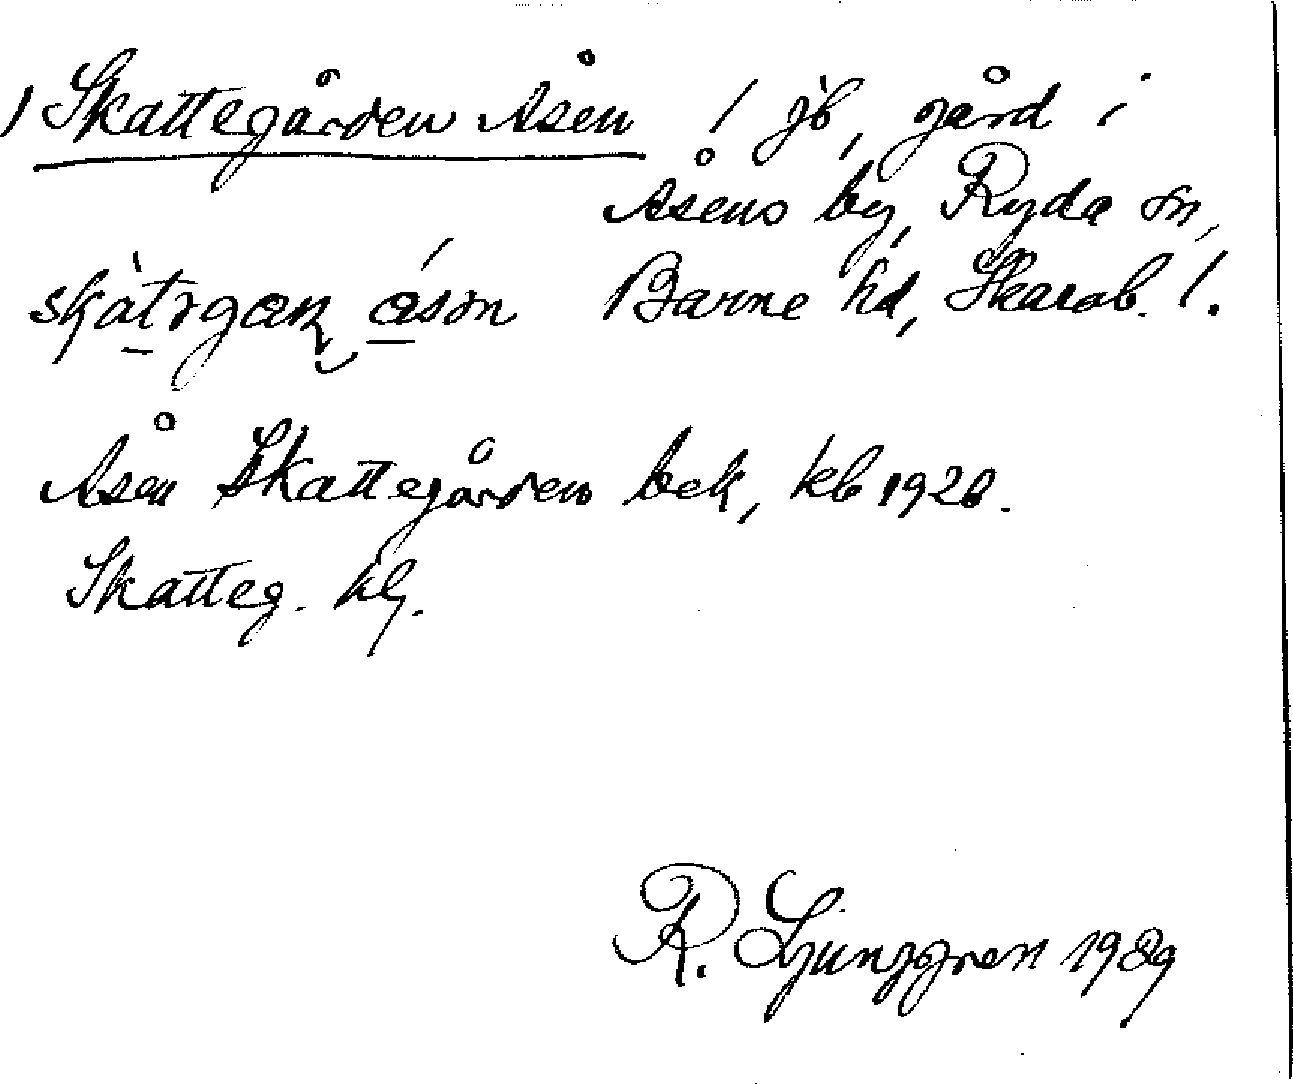 / Skattegården Åsen / jb, gård i
Åsens by, Ryda sn,
Barne hd, Skarab. l.
Åsen Skattegården bek, kb 1920.
Skatteg. hfl.
R. Ljunggren 1989